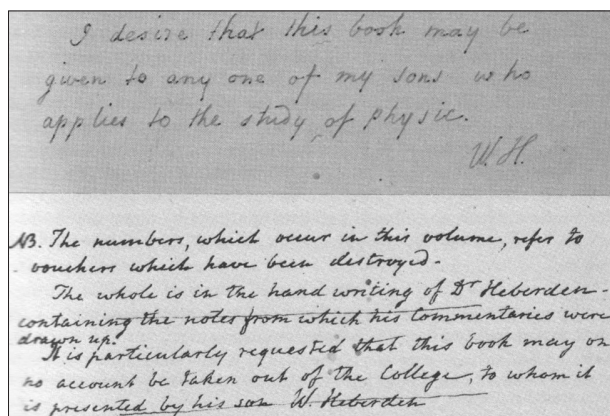 I desire that this book may be
given to any one of my sons who
applies to the study of physic.
W.H.
NB. The numbers, which occur in this volume, refer to
vouchers which have been destroyed.
The whole is in the hand writing of Dr Heberden -
containing the notes from which his Commentaries were
drawn up.
It is particularly requested that this book may on
no account be taken out of the College, to whom it
is presented by his son W. Heberden